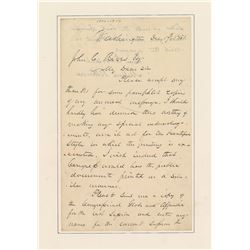 Washington Dec 9th 1851
John C. Rives Esq
My Dear Sir
Please accept my
thanks for some pamphlet copies
of my annual message. I should
hardly have deemed this worthy of
making any special acknowledg-
ment, were it not for the beautiful
style in which the printing is ex-
ecuted. I wish indeed that
Congress would have the public
documents printed in a sim-
ilar manner.
Please send me a copy of
the Congressional Globe and Appendix
for the last Session and enter my
name for the current Session &